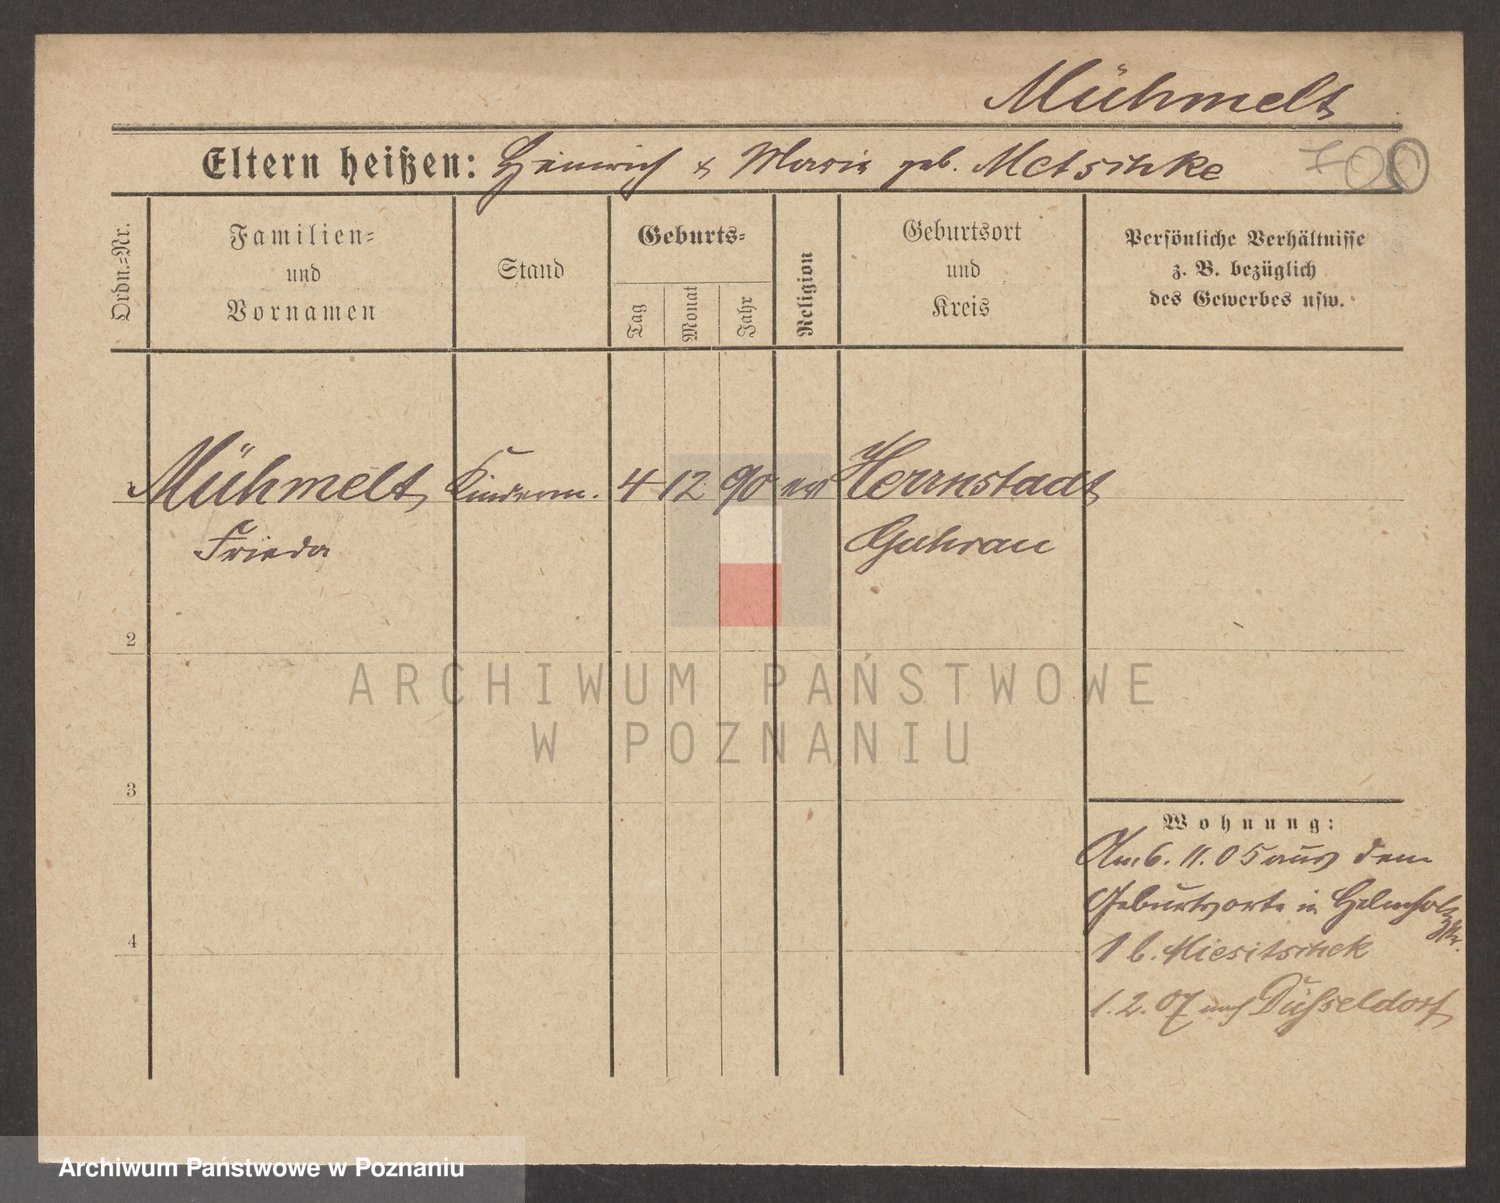 Mühmelt
Eltern heißen: Heinrich & Marie geb. Metschke
700
Ordn.=Nr.
Familien=
und
Vornamen
Stand
Geburts=
Tag
Monat
Jahr
Religion
Geburtsort
und
Kreis
Persönliche Verhältnisse
z. B. bezüglich
des Gewerbes usw.
Mühmelt Kinderm. 4 12 90 ev Herrnstadt
Frieda Guhrau
2
ARCHIWUM PAŃSTWOWE
W POZNANIU
3
Wohnung:
Am 6. 11. 05 aus dem
Geburtsorte in Helmholtzstr.
1 b. Miesitschek
1. 2. 07 nach Düsseldorf
4
Archiwum Państwowe w Poznaniu